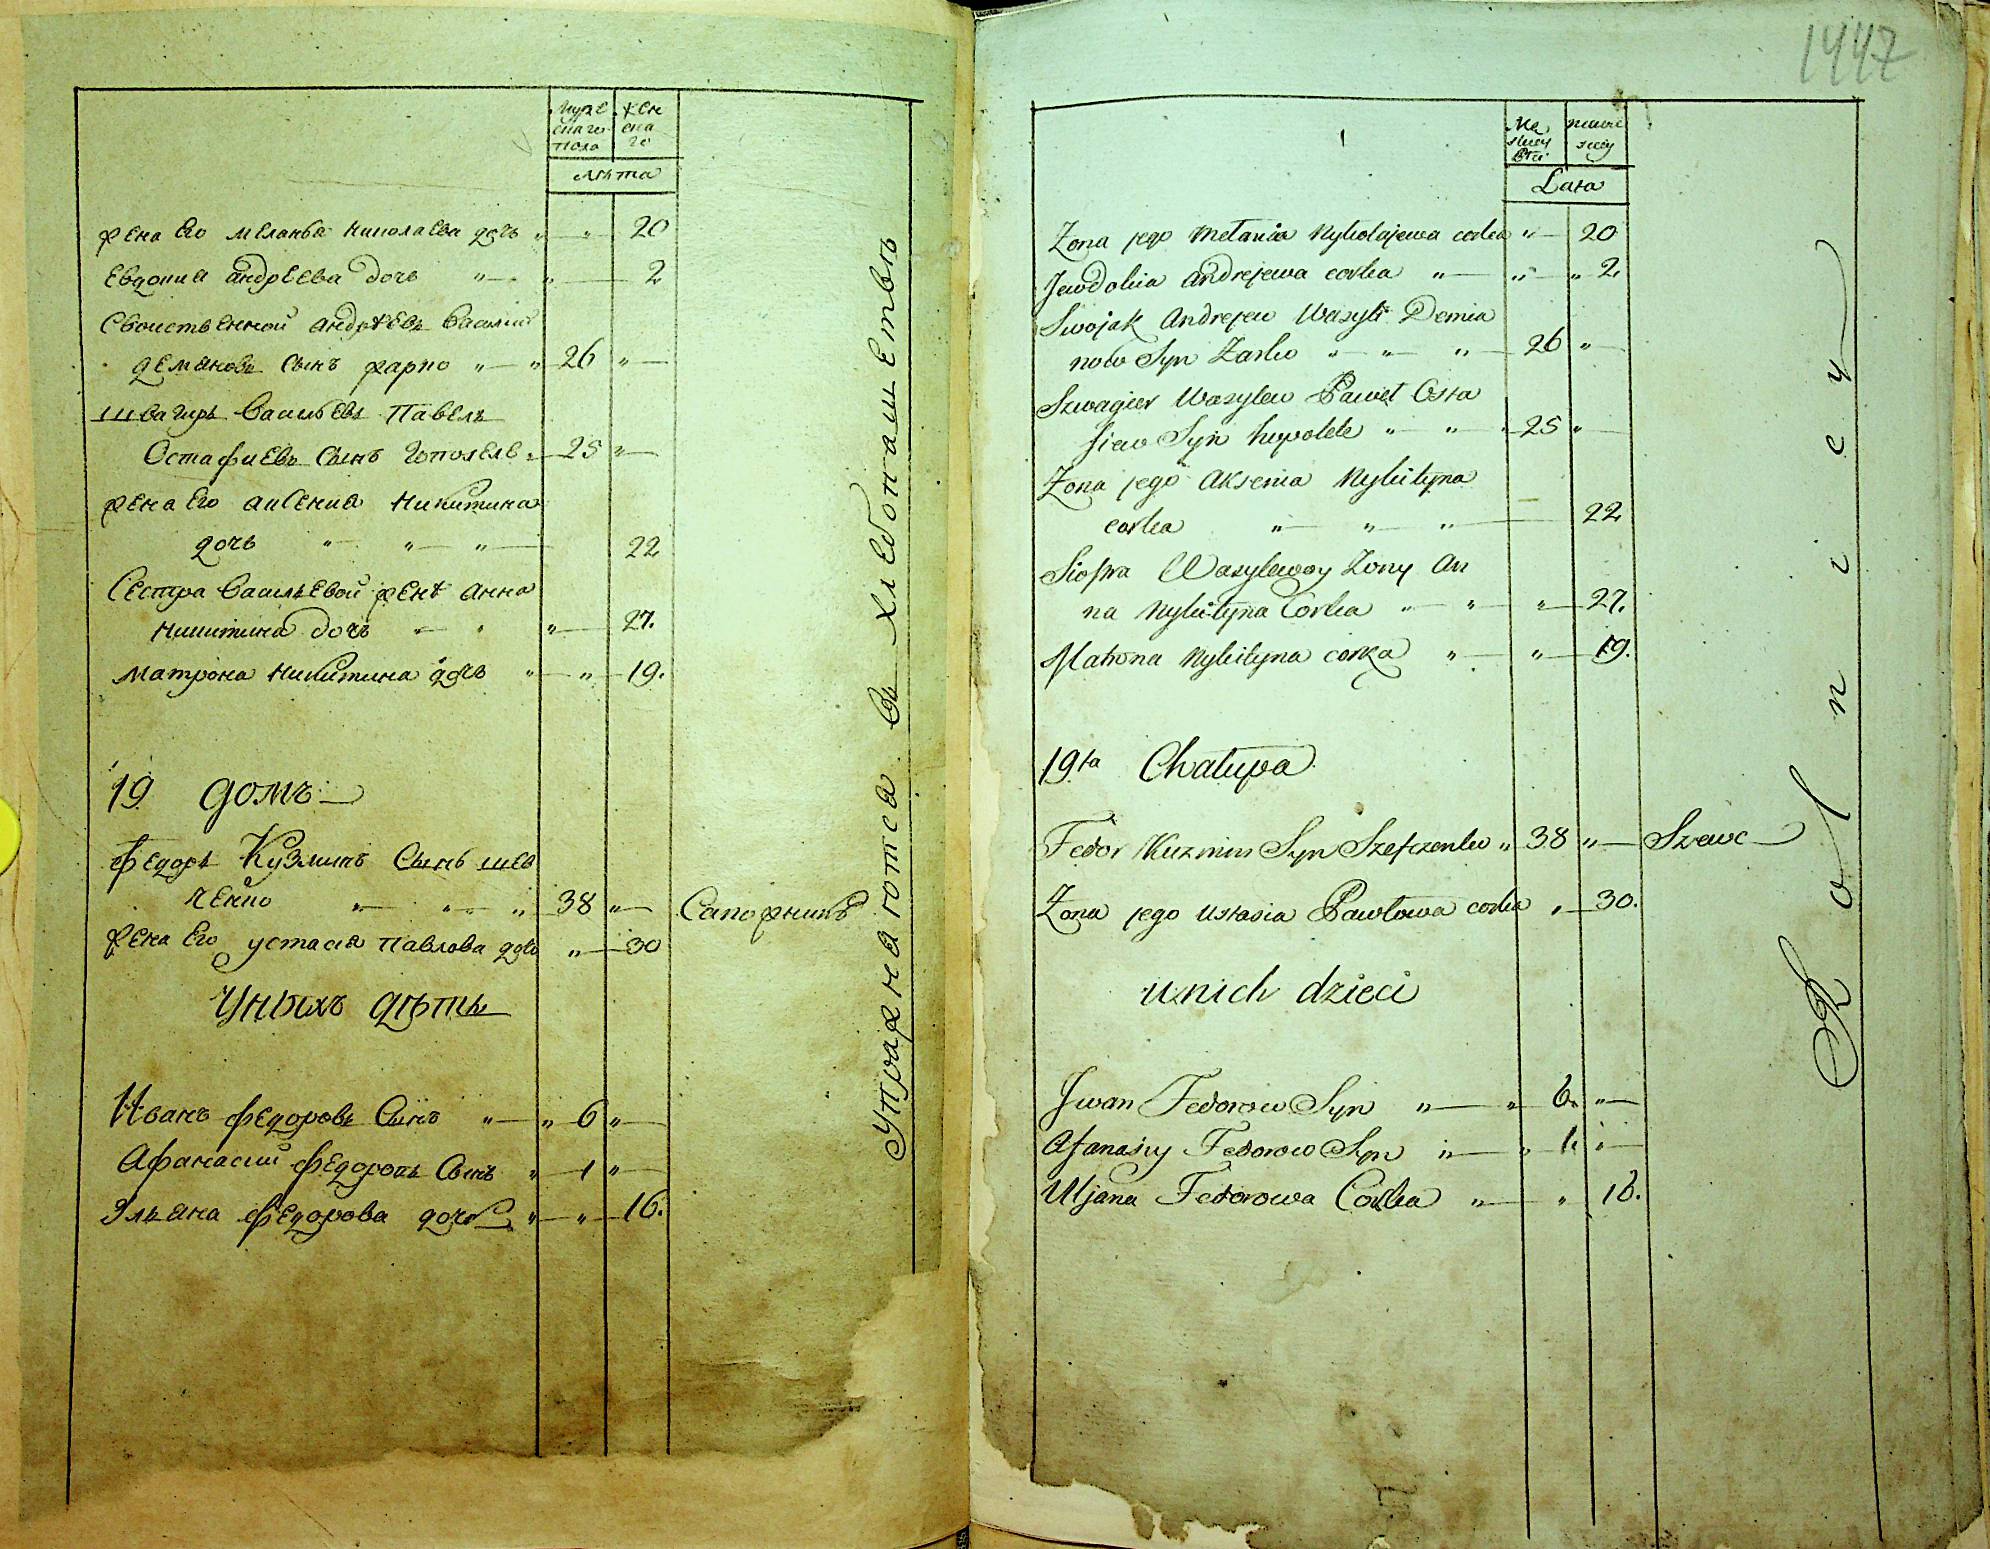 Муже
скаго
пола
жен
ска
го
Лѣта
жена Его меланья николаева дочь „ „ 20
Евдокиа андрѣева дочь „ „ 2
Своиственной андрѣевъ василий
демяновъ сынъ жарко „ „ 26 „
швагиръ васильевъ павелъ
Остафиевъ сынъ гополеле „ 25 „
жена Его аксения никитина
дочь „ „ „ 22
Сестра васильевой женѣ анна
никитина дочь „ „ „ 27.
матрона никитина дочь „ „ 19.
19 домъ
федоръ Кузминъ сынъ шев
ченко „ „ „ 38 „ Сапожникъ
жена Его устасия павлова дочь „ 30
Унихъ дѣти
Иванъ федоровъ Сынъ „ „ 6 „
Афанасий федоровъ Сынъ „ 1 „
Ульяна федорова дочь „ „ 16.
Упражняются въ хлебопашетвѣ
1447
Mę
skiey
Płci
żeńs
kiey
Lata
Zona jego Melania Nykolajewa corka „ 20
Jewdokia Andrejewa corka „ „ „ 2
Swojak Andrejew Wasyli Demia
now Syn Zarko „ „ „ 26 „
Szwagier Wasylew Paweł Osta
fiew Syn hopolele „ „ „ 25 „
Zona jego Aksenia Nykityna
corka „ „ „ 22
Siostra Wasylewoy Zony An
na Nykityna Corka „ „ „ 27.
Matrona Nykityna corka „ „ 19.
19ta Chałupa
Fedor Kuzmin Syn Szefczenko „ 38 „ Szewc
Zona jego Ustasia Pawłowa corka „ 30.
u nich dzieci
Jwan Fedorow Syn „ „ 6. „
Afanasiy Fedorow Syn „ „ 1. „
Uljana Fedorowa Corka „ „ 16.
Rolnicy